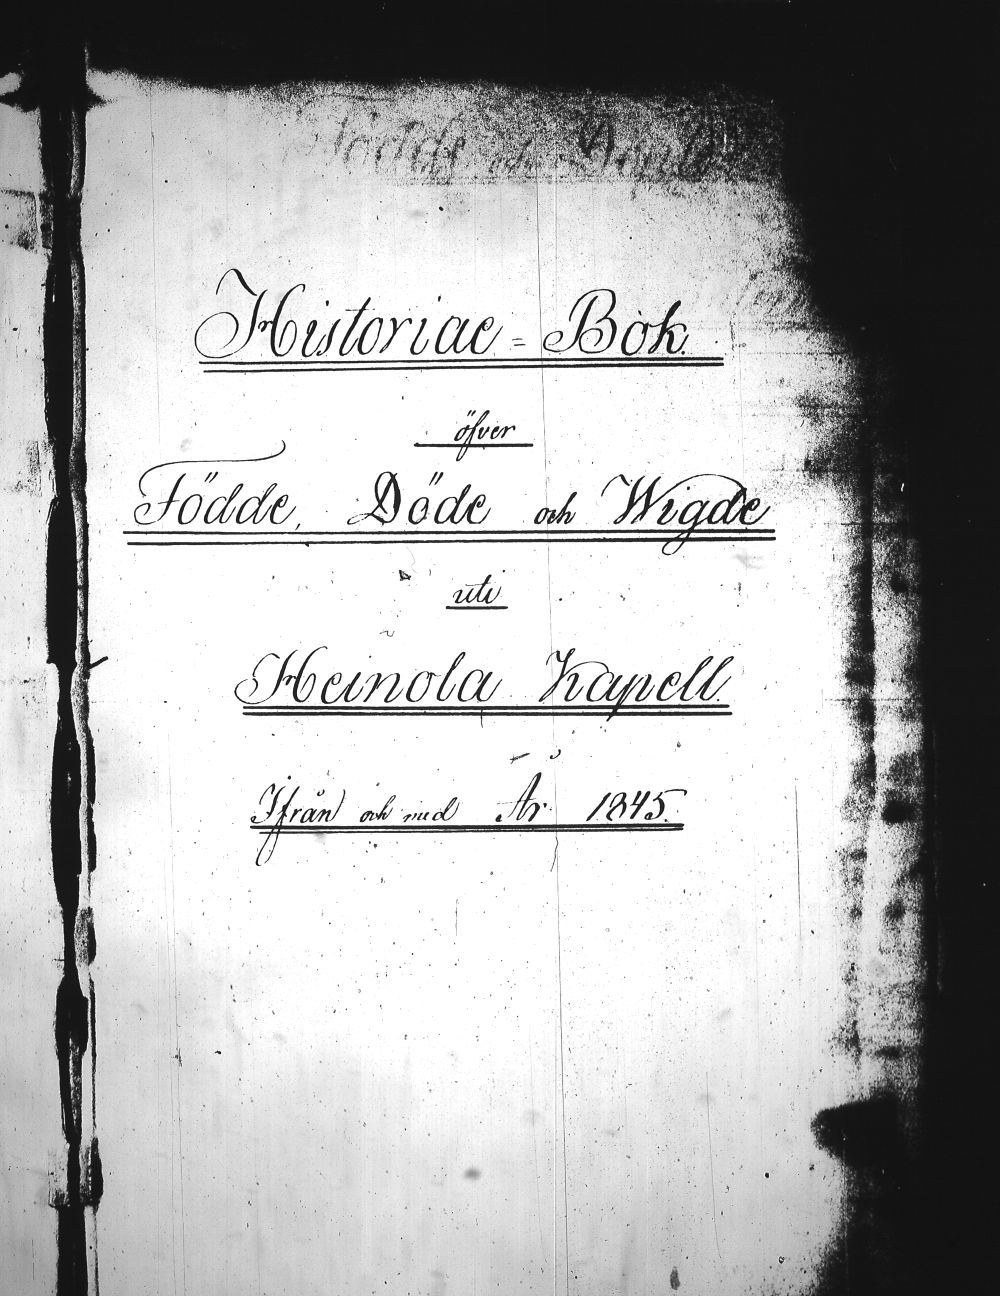 Historiae = Bok.
öfver
Födde, Döde och Wigde
uti
Heinola Kapell
Ifrån och med År 1845.